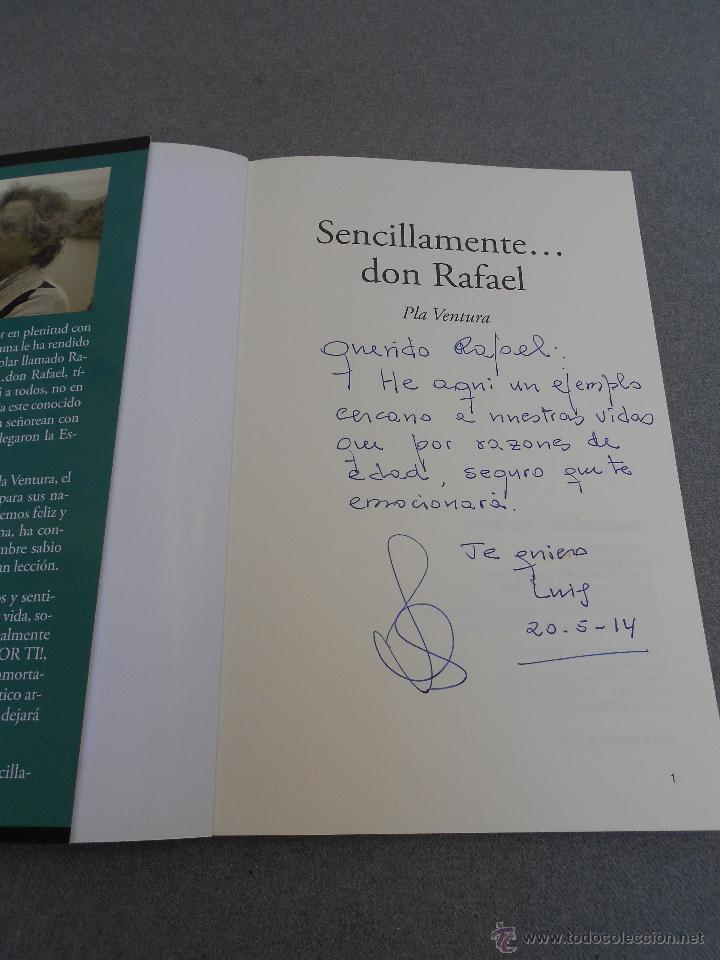 r en plenitud con
uma le ha rendido
plar llamado Ra-
...don Rafael, tí-
a todos, no en
a este conocido
señorean con
legaron la Es-
la Ventura, el
para sus na-
emos feliz y
na, ha con-
mbre sabio
an lección.
s y senti-
vida, so-
almente
OR TI!,
nmorta-
tico ar-
dejará
cilla-
Sencillamente...
don Rafael
Pla Ventura
Querido Rafael:
He aqui un ejemplo
cercano a nuestras vidas
que por razones de
edad, seguro que te
emocionará.
Te quiero
Luis
20-5-14
1
www.todocoleccion.net